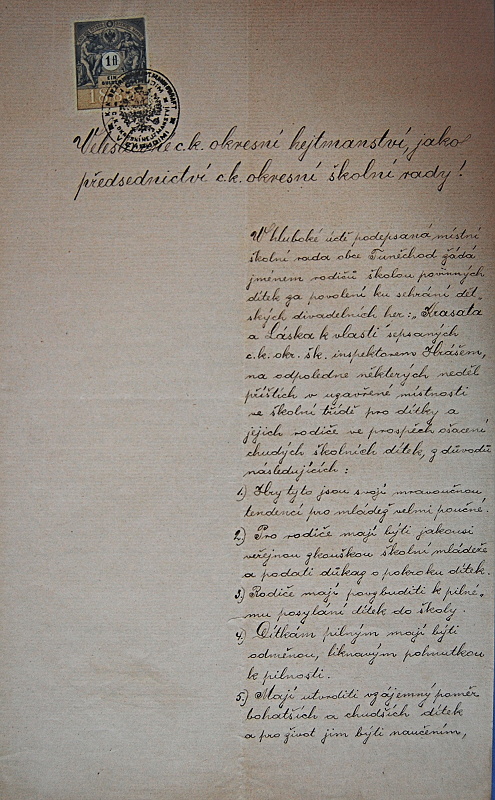 1 fl
Velesl. c.k. okresní hejtmanství, jako
předsednictví c.k. okresní školní rady!
V hluboké úctě podepsaná místní
školní rada obce Tuněchod žádá
jménem rodičů školou povinných
dítek za povolení ku sehrání dět„
ských divadelních her: „Krasata
a Láska k vlasti sepsaných
c.k. okr. šk. inspektorem Hrášem,
na odpoledne některých neděl
příštích v uzavřené místnosti
ve školní třídě pro dítky a
jejich rodiče ve prospěch ošacení
chudých školních dítek, z důvodů
následujících:
1.) Hry tyto jsou svojí mravoučnou
tendencí pro mládež velmi poučné.
2.) Pro rodiče mají býti jakousi
veřejnou zkouškou školní mládeže
a podati důkaz o pokroku dítek.
3.) Rodiče mají povzbuditi k pilné„
mu posylání dítek do školy.
4.) Dítkám pilným mají býti
odměnou, liknavým pohnutkou
k pilnosti.
5.) Mají utvrditi vzájemný poměr
bohatších a chudších dítek
a pro život jim býti naučením,